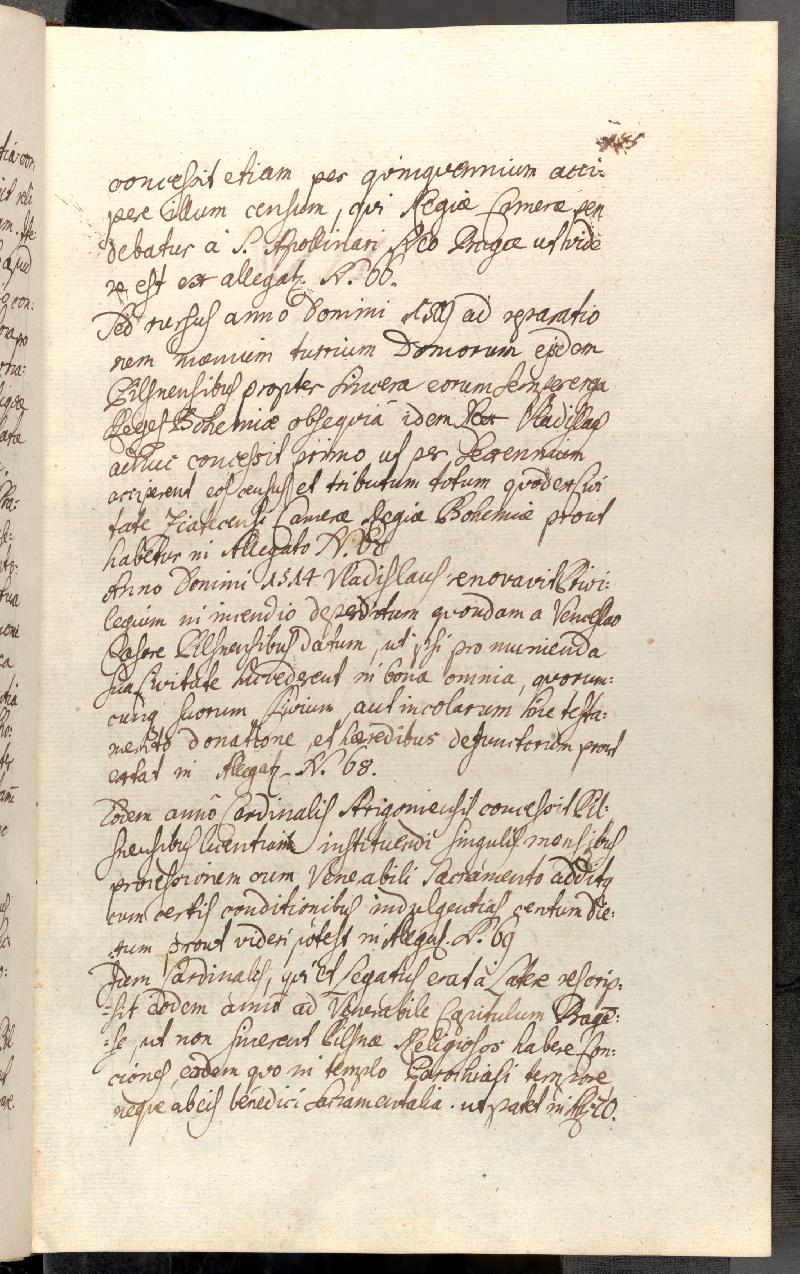 concessit etiam per quinquennium acci-
pere illum censum, qui Regiæ Cameræ pen
debatur a S. Apollinari Neo Pragæ ut vide
re est ex allegat. N. 66.
Sed rursus anno Domini ad reparatio
nem mœnium turrium Domorum ejsdem
Pilsnensibus propter sincera eorum semper erga
Reges Bohemiæ obsequia idem Rex Vladislaus
adhuc concessit primo ut per Decennium
acciperent eos census et tributum totum quod ex Civi
tate Ziatecensi Cameræ Regiæ Bohemiæ prout
habetur in Allegato N. 67
Anno Domini 1514 Vladislaus renovavit Privi-
legium in incendio deperditum quondam a Venceslao
Cæsare Pilsnensibus datum, ut ipsi pro munienda
sua Civitate succederent in bona omnia, quorum-
cunq suorum Civium, aut incolarum sine testa-
mento donatione, et hæredibus defunctorum prout
extat in Allegat. N. 68.
Eodem anno Cardinalis Strigoniensis concessit Pil-
snensibus licentiam instituendi singulis mensibus
processionem cum Venerabili Sacramento additq
cum certis conditionibus indulgentias centum Die-
rum prout videri potest in Allegat. N. 69
Idem Cardinalis, qui et Legatus erat a Latere rescrip-
-sit eodem anno ad Venerabile Capitulum Prage-
-se, ut non sinerent Pilsnæ Religiosos habere Con-
ciones, eodem quo in templo Parochiali tempore,
neque ab eis benedici Sacramentalia. ut patet in N. 70.